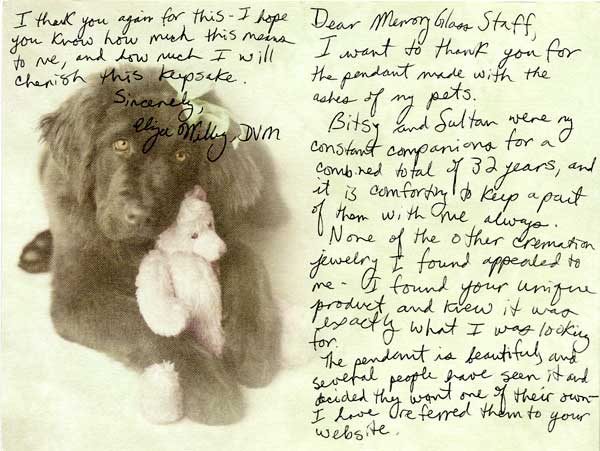 Dear Memory Glass Staff,
I want to thank you for
the pendant made with the
ashes of my pets.
Bitsy and Sultan were my
constant companions for a
combined total of 32 years, and
it is comforting to keep a part
of them with me always.
None of the other cremation
jewelry I found appealed to
me - I found your unique
product, and knew it was
exactly what I was looking
for.
The pendant is beautiful, and
several people have seen it and
decided they want one of their own -
I have referred them to your
website.
I thank you again for this - I hope
you know how much this means
to me, and how much I will
cherish this keepsake.
Sincerely,
DVM